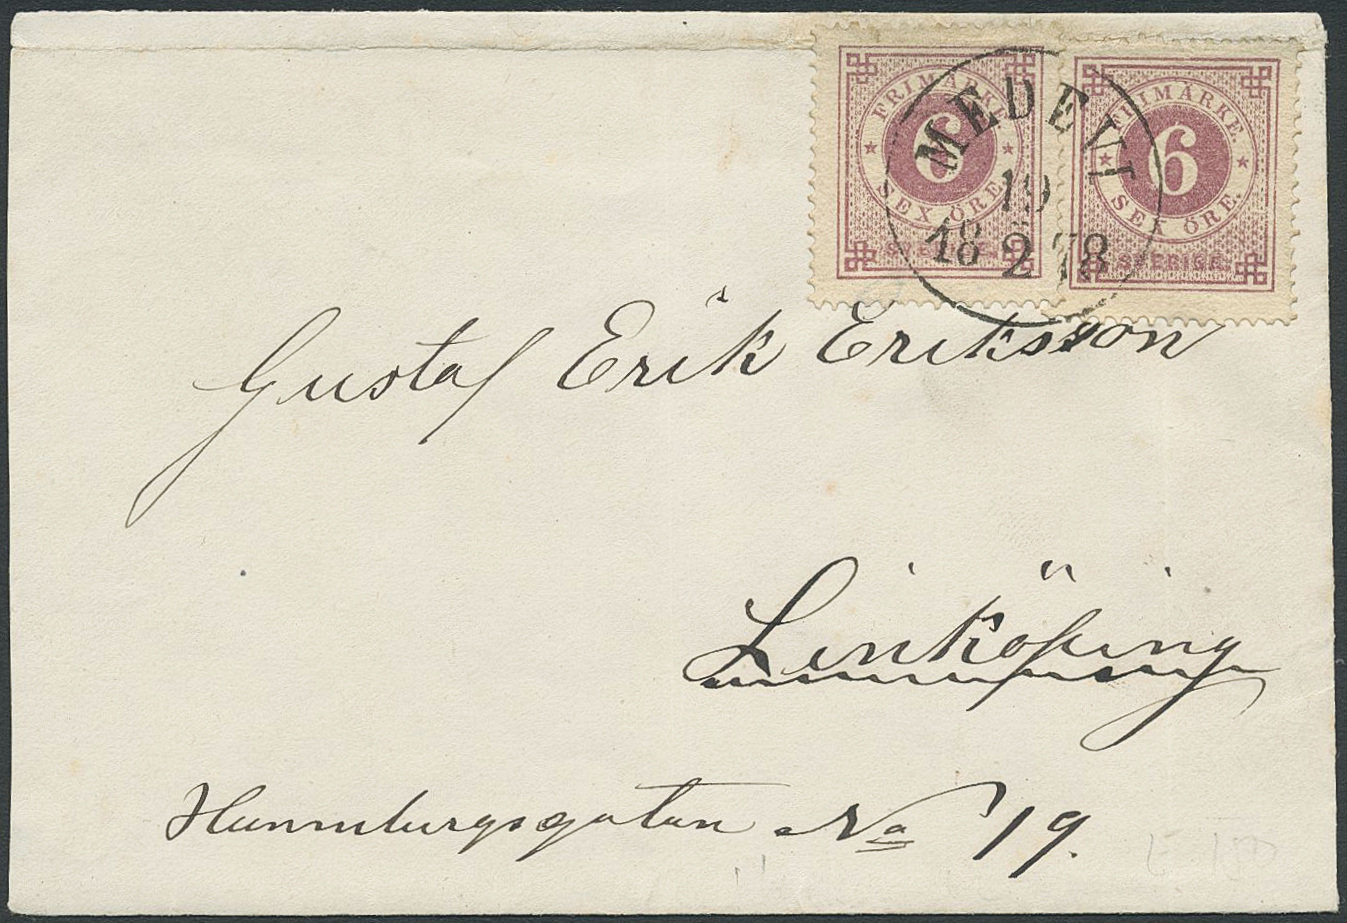 FRIMÄRKE.
6
SEX ÖRE.
SVERIGE.
FRIMÄRKE.
6
SEX ÖRE.
SVERIGE.
MEDEVI
19
18 2 78
Gustaf Erik Eriksson
Linköping
Hunnebergsgatan No 19.